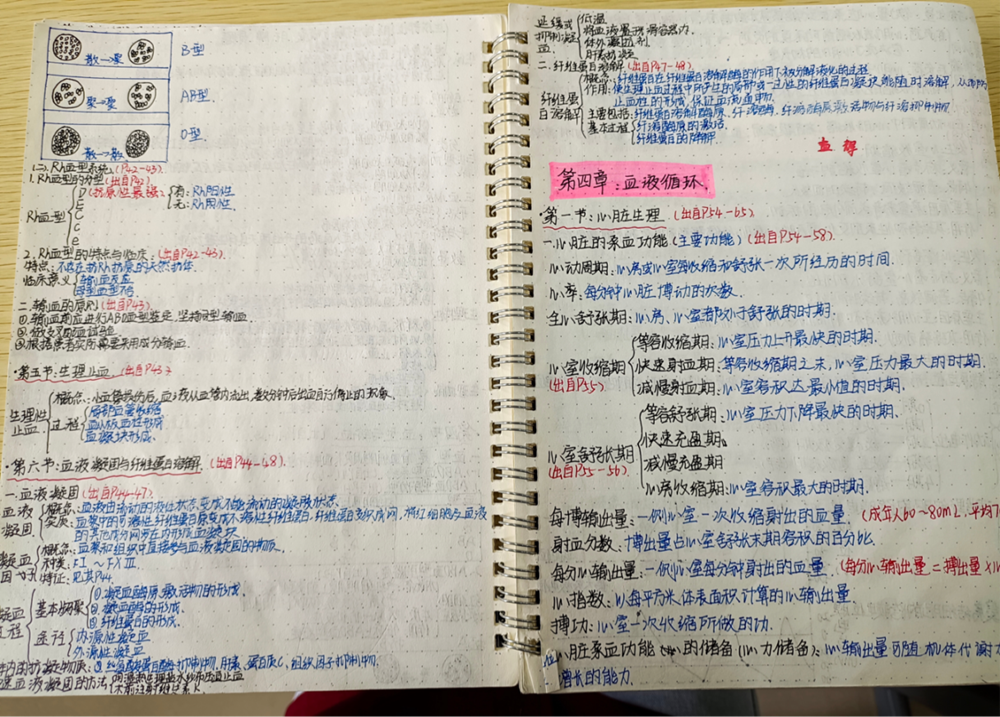 散→聚 B型
聚→聚 AB型
散→散 O型
(二). Rh血型系统. (P42-43).
1. Rh血型的分型 (出自P42)
Rh血型
D (抗原性最强)
有: Rh阳性
无: Rh阴性.
E
C
c
e
2. Rh血型的特点与临床: (出自P42-43).
特点: 不存在抗Rh抗原的天然抗体.
临床意义
输血反应
母婴血型不合
二. 输血的原则 (出自P43)
① 输血前应进行ABO血型鉴定, 坚持同型输血
② 做交叉配血试验
③ 根据患者实际需要采用成分输血.
·第五节: 生理止血. (P43)
生理性止血
概念: 小血管损伤后, 血液从血管内流出, 数分钟后出血自行停止的现象.
过程
局部血管收缩
血小板血栓形成
血凝块形成.
·第六节: 血液凝固与纤维蛋白溶解. (出自P44-48).
一. 血液凝固 (出自P44-47).
血液凝固
概念: 血液由流动的液体状态变成不能流动的凝胶状态.
实质: 血浆中的可溶性纤维蛋白原变成不溶性纤维蛋白, 纤维蛋白交织成网, 将红细胞及血液的其他成分网罗在内形成血凝块.
凝血因子
概念: 血浆和组织中直接参与血液凝固的物质.
种类: FI ~ FXIII.
特征: 见其P44.
凝血过程
基本步骤
① 凝血酶原激活物的形成.
② 凝血酶的形成.
③ 纤维蛋白的形成.
途径
内源性凝血
外源性凝血
体内的抗凝物质: ① 丝氨酸蛋白酶抑制物, 肝素, 蛋白质C, 组织因子抑制物.
速血液凝固的方法
延缓或抑制凝血
低温
将血液置于光滑容器内.
体外凝固剂
二. 纤维蛋白溶解 (出自P47-48).
纤维蛋白溶解
概念: 纤维蛋白在纤维蛋白溶解酶的作用下被分解液化的过程
作用: 使生理止血过程中所产生的局部或一过性的纤维蛋白凝块能随时溶解, 从而防止血栓的形成, 保证血流通畅.
主要包括: 纤维蛋白溶解酶原、纤溶酶、纤溶酶原激活物与纤溶抑制物
基本过程
纤溶酶原的激活.
纤维蛋白的降解.
第四章: 血液循环.
·第一节: 心脏生理. (出自P54-65)
一. 心脏的泵血功能 (主要功能) (出自P54-58).
心动周期: 心房或心室每收缩和舒张一次所经历的时间.
心率: 每分钟心脏搏动的次数.
全心舒张期: 心房、心室都处于舒张的时期.
心室收缩期 (出自P55)
等容收缩期: 心室压力上升最快的时期.
快速射血期: 等容收缩期之末, 心室压力最大的时期.
减慢射血期: 心室容积达最小值的时期.
心室舒张期 (出自P55-56).
等容舒张期: 心室压力下降最快的时期.
快速充盈期。
减慢充盈期
心房收缩期: 心室容积最大的时期.
每搏输出量: 一侧心室一次收缩射出的血量. (成年人60~80mL, 平均7
射血分数: 搏出量占心室舒张末期容积的百分比.
每分心输出量: 一侧心室每分钟射出的血量. (每分心输出量=搏出量×心
心指数: 以每平方米体表面积计算的心输出量.
搏功: 心室一次收缩所做的功.
心脏泵血功能 的储备 (心力储备): 心输出量可随机体代谢
增长的能力.